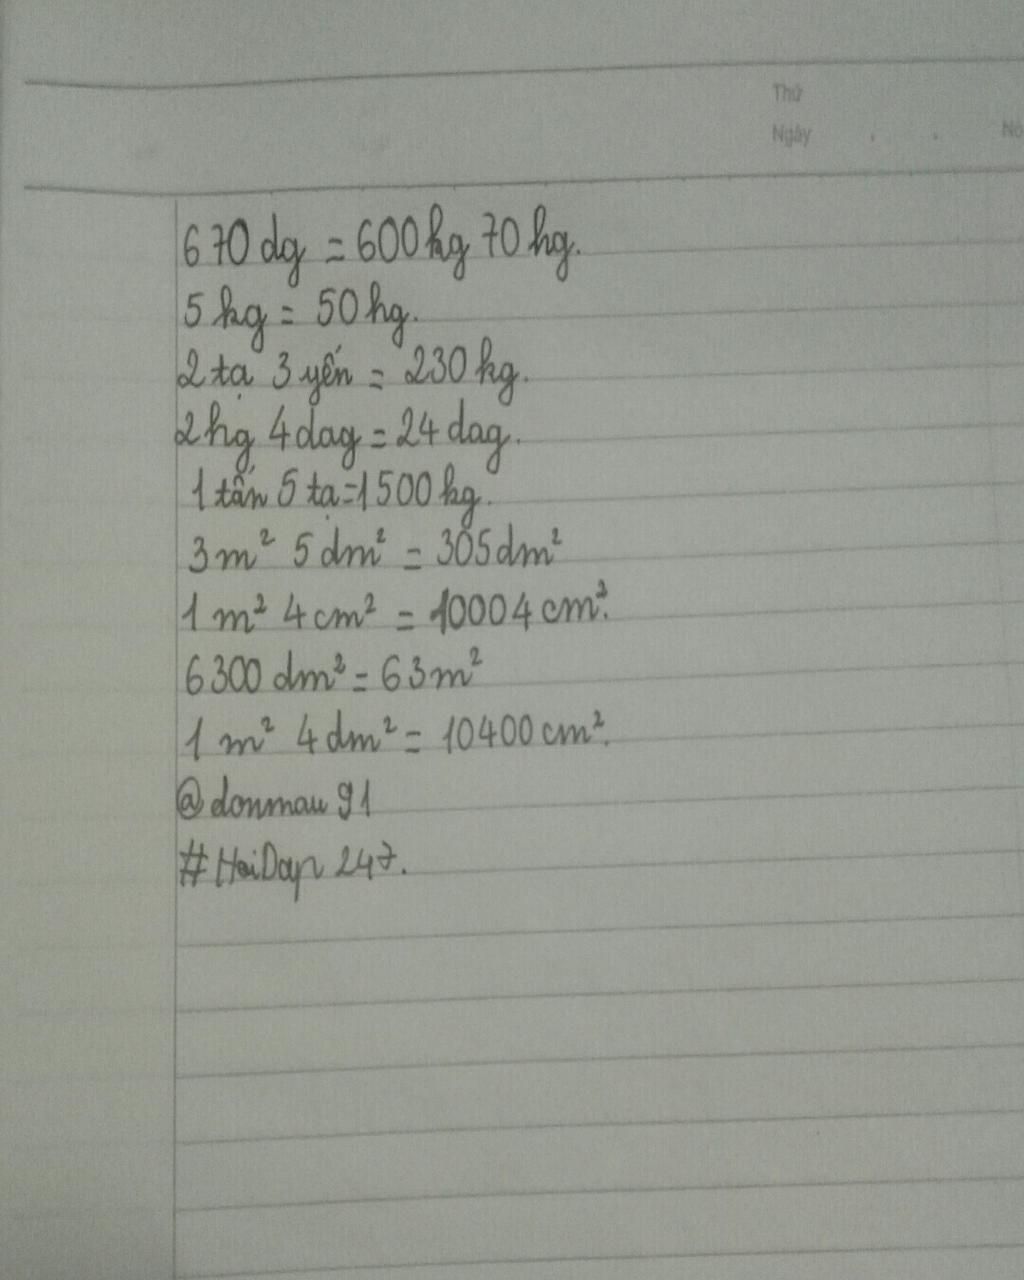 Thứ
Ngày . . No
670 dg = 600 kg 70 hg.
5 kg = 50 hg.
2 tạ 3 yến = 230 kg.
2 hg 4 dag = 24 dag.
1 tấn 5 tạ = 1500 kg.
3 m² 5 dm² = 305 dm²
1 m² 4 cm² = 10004 cm².
6300 dm² = 63 m²
1 m² 4 dm² = 10400 cm².
@donmau91
#HoiDap247.